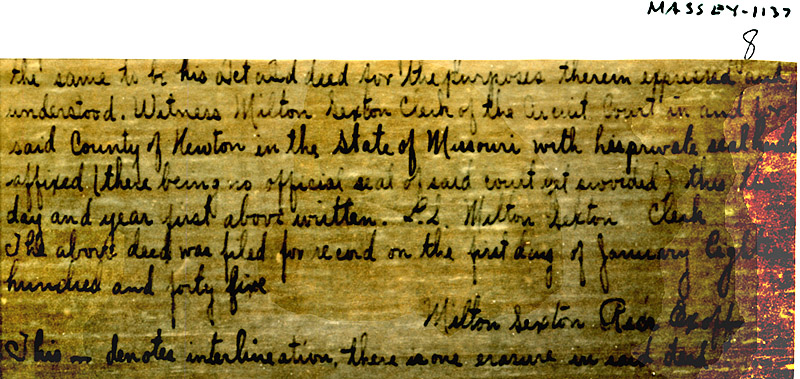 MASSEY-1137
8
the same to be his act and deed for the purposes therein expressed and
understood. Witness Milton Sexton Clerk of the Circuit Court in and for
said County of Newton in the State of Missouri with his private seal
affixed (there being no official seal of said court yet provided) this the
day and year first above written. L.S. Milton Sexton Clerk
The above deed was filed for record on the first day of January Eight
hundred and forty five
Milton Sexton Recr Exoff
This — denotes interlineation, there is one erasure in said deed